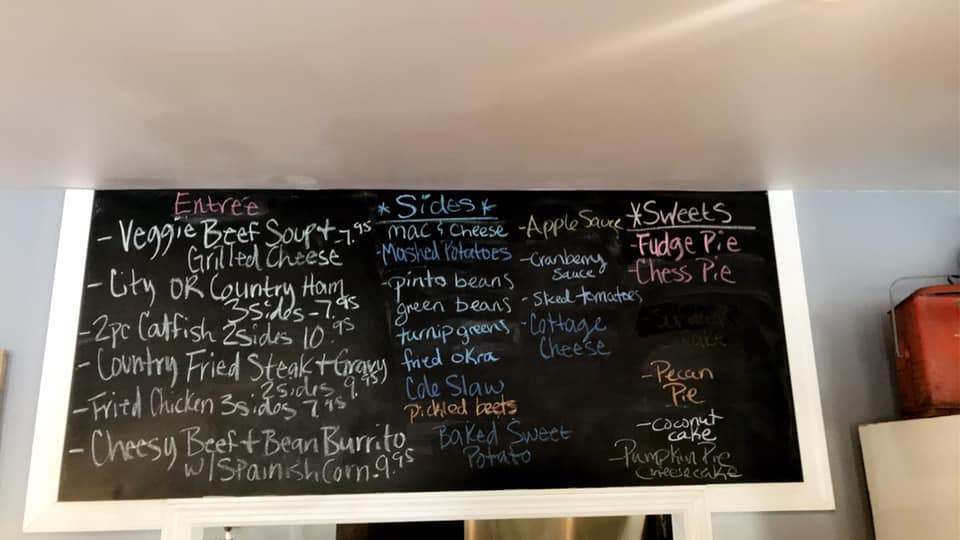 Entrée
- Veggie Beef Soup + -7.95
Grilled Cheese
- City OR Country Ham
3sides - 7.95
- 2pc Catfish 2sides 10.95
- Country Fried Steak + Gravy
2sides 9.95
- Fried Chicken 3sides 7.95
- Cheesy Beef + Bean Burrito
w/ Spainish Corn. 9.95
*Sides*
mac & Cheese
- Mashed Potatoes
- pinto beans
green beans
turnip greens
fried okra
Cole Slaw
pickled beets
Baked Sweet
Potato
- Apple Sauce
- Cranberry
Sauce
- Sliced tomatoes
- Cottage
Cheese
*Sweets
- Fudge Pie
- Chess Pie
- Pecan
Pie
- Coconut
cake
- Pumpkin Pie
Cheesecake